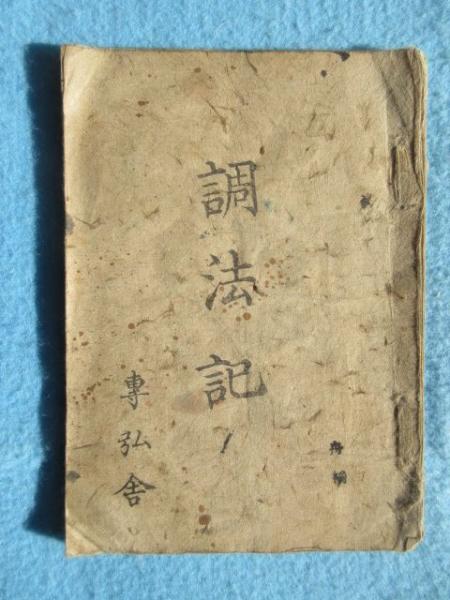 調法記
專弘舍